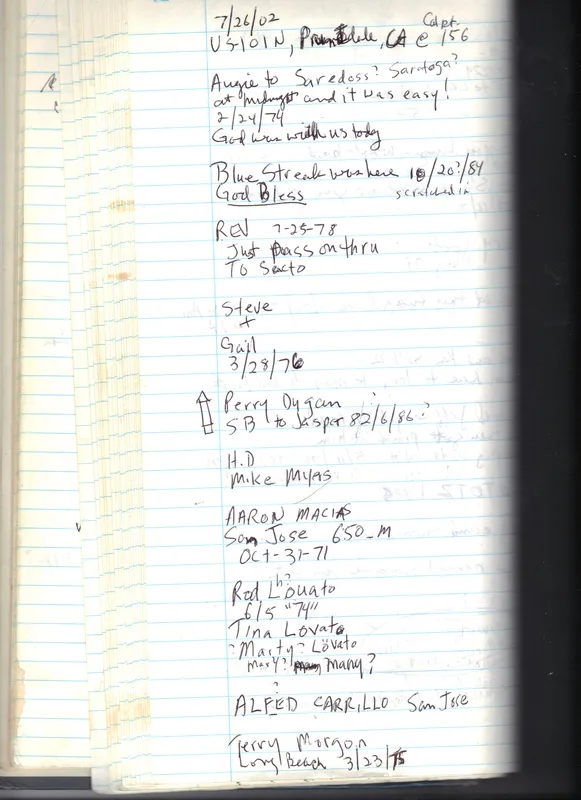 7/26/02
Calpt.
US-101N, Prunedale, CA @ 156
Augie to Saredoss? Saratoga?
at midnight and it was easy!
2/24/79
God was with us today
Blue Streak was here 10/20?/84
God Bless scratched in
REV 7-25-78
Just Pass on thru
To Sacto
Steve
+
Gail
3/28/76
Perry Dygan
SB to Jasper 82/6/86?
H.D
Mike Myas
AARON MACIAS
San Jose 650-M
Oct-31-71
h?
Rod Louato
6/5 "74"
Tina Lovato
?Marty? Lovato
Mary? many?
?
ALFED CARRILLO San Jose
Terry Morgon
Long Beach 3/23/75